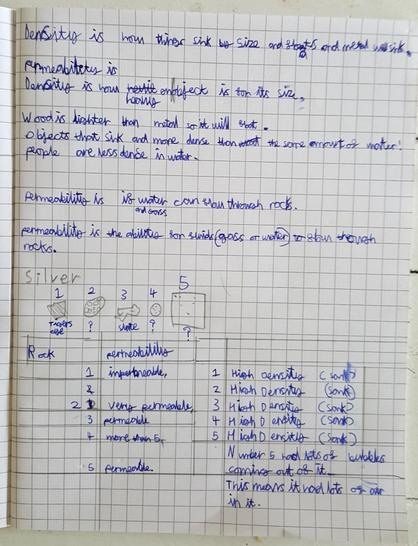 Density is how things sink by size and and metal will sink.
Permeability is
Density is how heavy an object is for its size,
Wood is lighter than metal so it will float.
Objects that sink and more dense than the same amount of water!
people are less dense in water.
Permeability is is water can flow through rocks.
and gass
permeability is the abilitey for fluids (gass or water) to flow through
rocks.
Silver
1 2 3 4 5
Tigers eye ? slate ? ?
Rock permeability
1 impermeable, 1 High Density (sank)
2 2 High Density (sank)
2 very permeable, 3 High Density (sank)
3 permeable 4 High Density (sank)
4 more than 5, 5 High Density (sank)
Number 5 had lots of bubbles
5 permeable. coming out of it.
This means it had lots of air
in it.